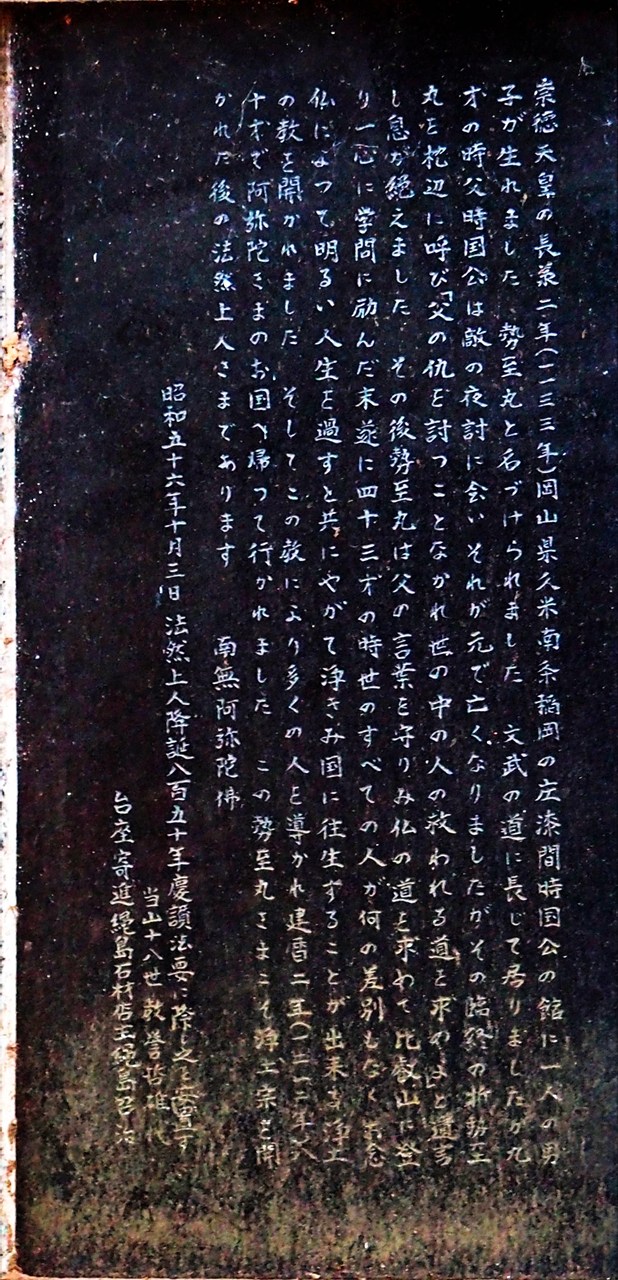 崇徳天皇の長承二年(一一三三年)岡山県久米南条稲岡の庄漆間時国公の館に一人の男
子が生れました 勢至丸と名づけられました 文武の道に長じて居りましたが九
才の時父時国公は敵の夜討に会いそれが元で亡くなりましたがその臨終の折勢至
丸を枕辺に呼び「父の仇を討つことなかれ世の中の人の救われる道を求めよと遺言
し息が絶えました その後勢至丸は父の言葉を守りみ仏の道を求めて比叡山に登
り一心に学問に励んだ末遂に四十三才の時世のすべての人が何の差別もなくお念
仏によつて明るい人生を過すと共にやがて浄きみ国に往生することが出来る浄土
の教を開かれました そしてこの教により多くの人を導かれ建暦二年(一二一二年)八
十才で阿弥陀さまのお国へ帰つて行かれました この勢至丸さまこそ浄土宗を開
かれた後の法然上人さまであります 南無阿弥陀佛
昭和五十六年十月三日 法然上人降誕八百五十年慶讃法要に際し之を安置す
当山十八世 誉哲雄代
台座寄進縄島石材店主縄島召治